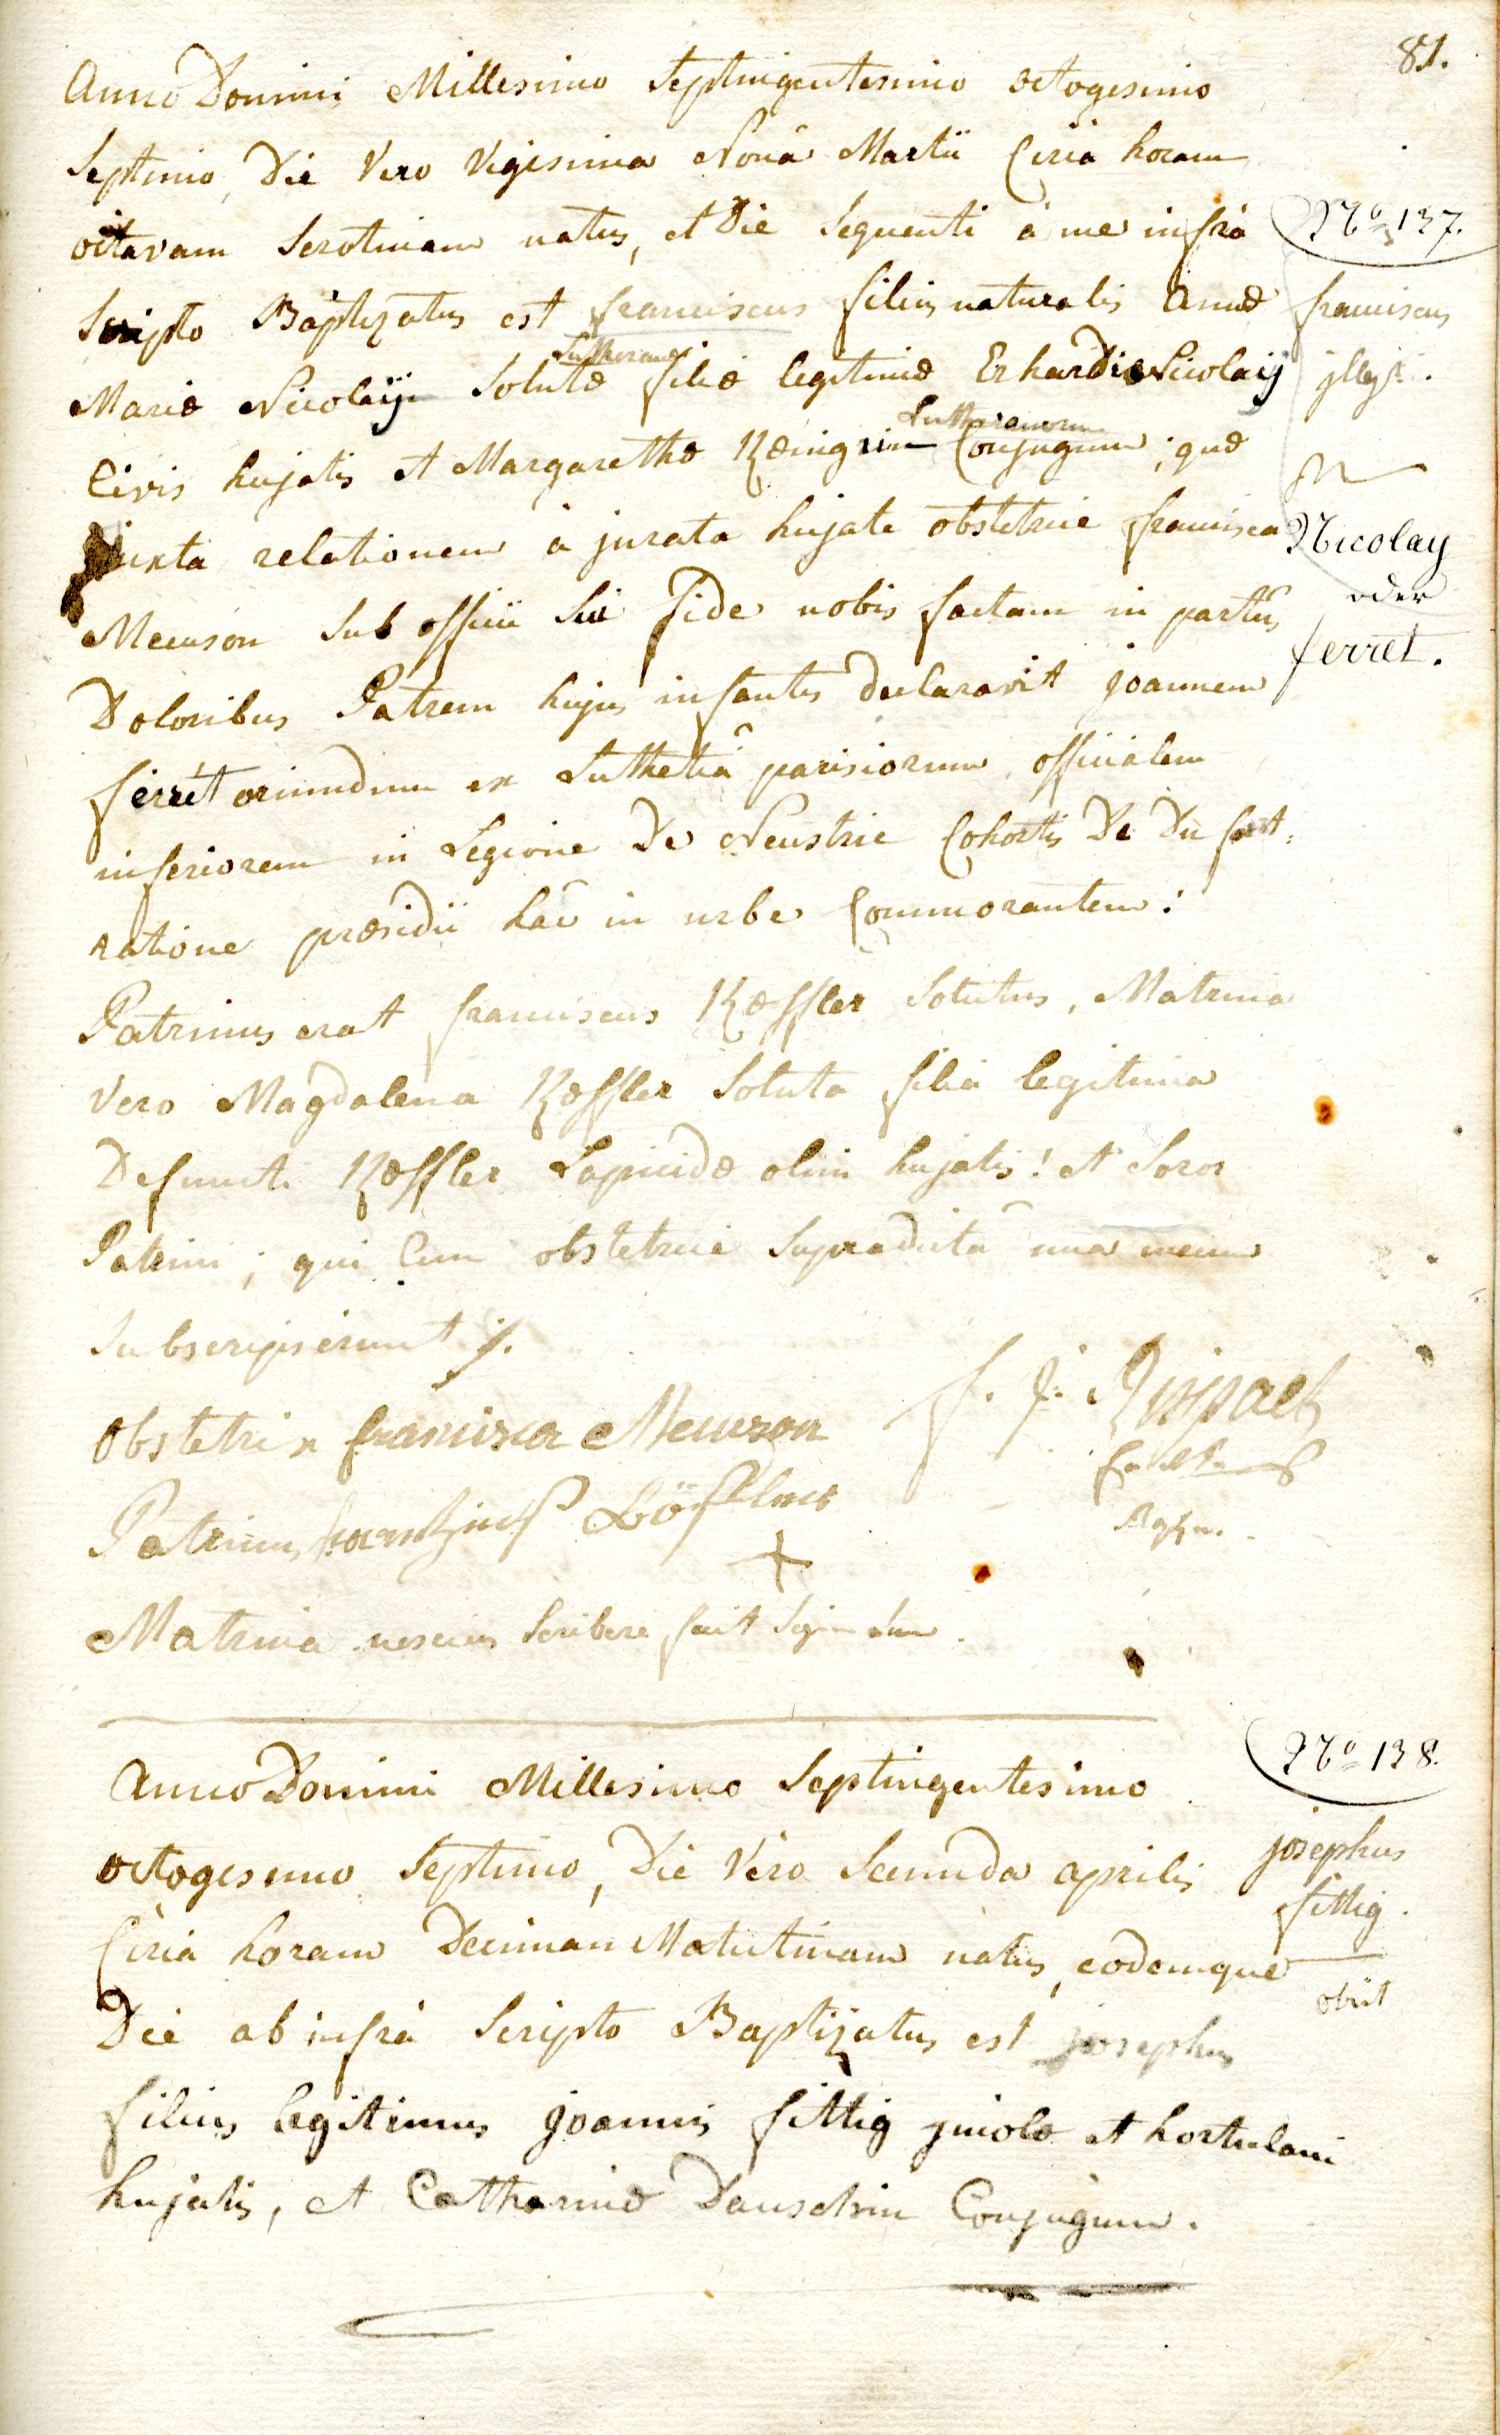 81.
Anno Domini Millesimo Septingentesimo octogesimo
Septimo, Die Vero Vigesima Nonâ Martii Circà horam
octavam Serotinam natus, et Die Sequenti à me infrà
Scripto Baptizatus est franciscus filius naturalis Annæ
Lutheranæ
Mariæ Nicolaÿ Solutæ filiæ legitimæ Erhardi Nicolaÿ
Lutheranorum
Civis hujatis et Margarethæ Kœnigin Conjugum; quæ
juxta relationem à jurata hujate obstetrice francisca
Meuson Sub officii Sui fide nobis factam in partûs
Doloribus Patrem hujus infantis declaravit joannem
ferrét oriundum ex Luthetiâ parisiorum, officialem
inferiorem in Legione De Neustrie Cohortis De Du
ratione præsidii hâc in urbe Commorantem:
Patrinus erat franciscus Kœffler Solutus, Matrina
Vero Magdalena Kœffler Soluta filia legitima
Defuncti Kœffler Lapicidæ olim hujatis! et Soror
Patrini; qui Cum obstetrice Supradictâ unà mecum
Subscripserunt ·/.
Obstetrix francisca Meuson
Patrinus Löffler
+
Matrina nescius Scribere fecit Signum Suum.
f. j.
No 137.
franciscus
Nicolay
oder
ferret.
Anno Domini Millesimo Septingentesimo
octogesimo Septimo, Die Vero Secunda aprilis
Circà horam Decimam Matutinam natus, eodemque
Die ab infrà Scripto Baptizatus est josephus
filius legitimus joannis fittig incolæ et hortulani
hujatis, et Catharinæ Conjugum.
No 138.
josephus
fittig.
obiit